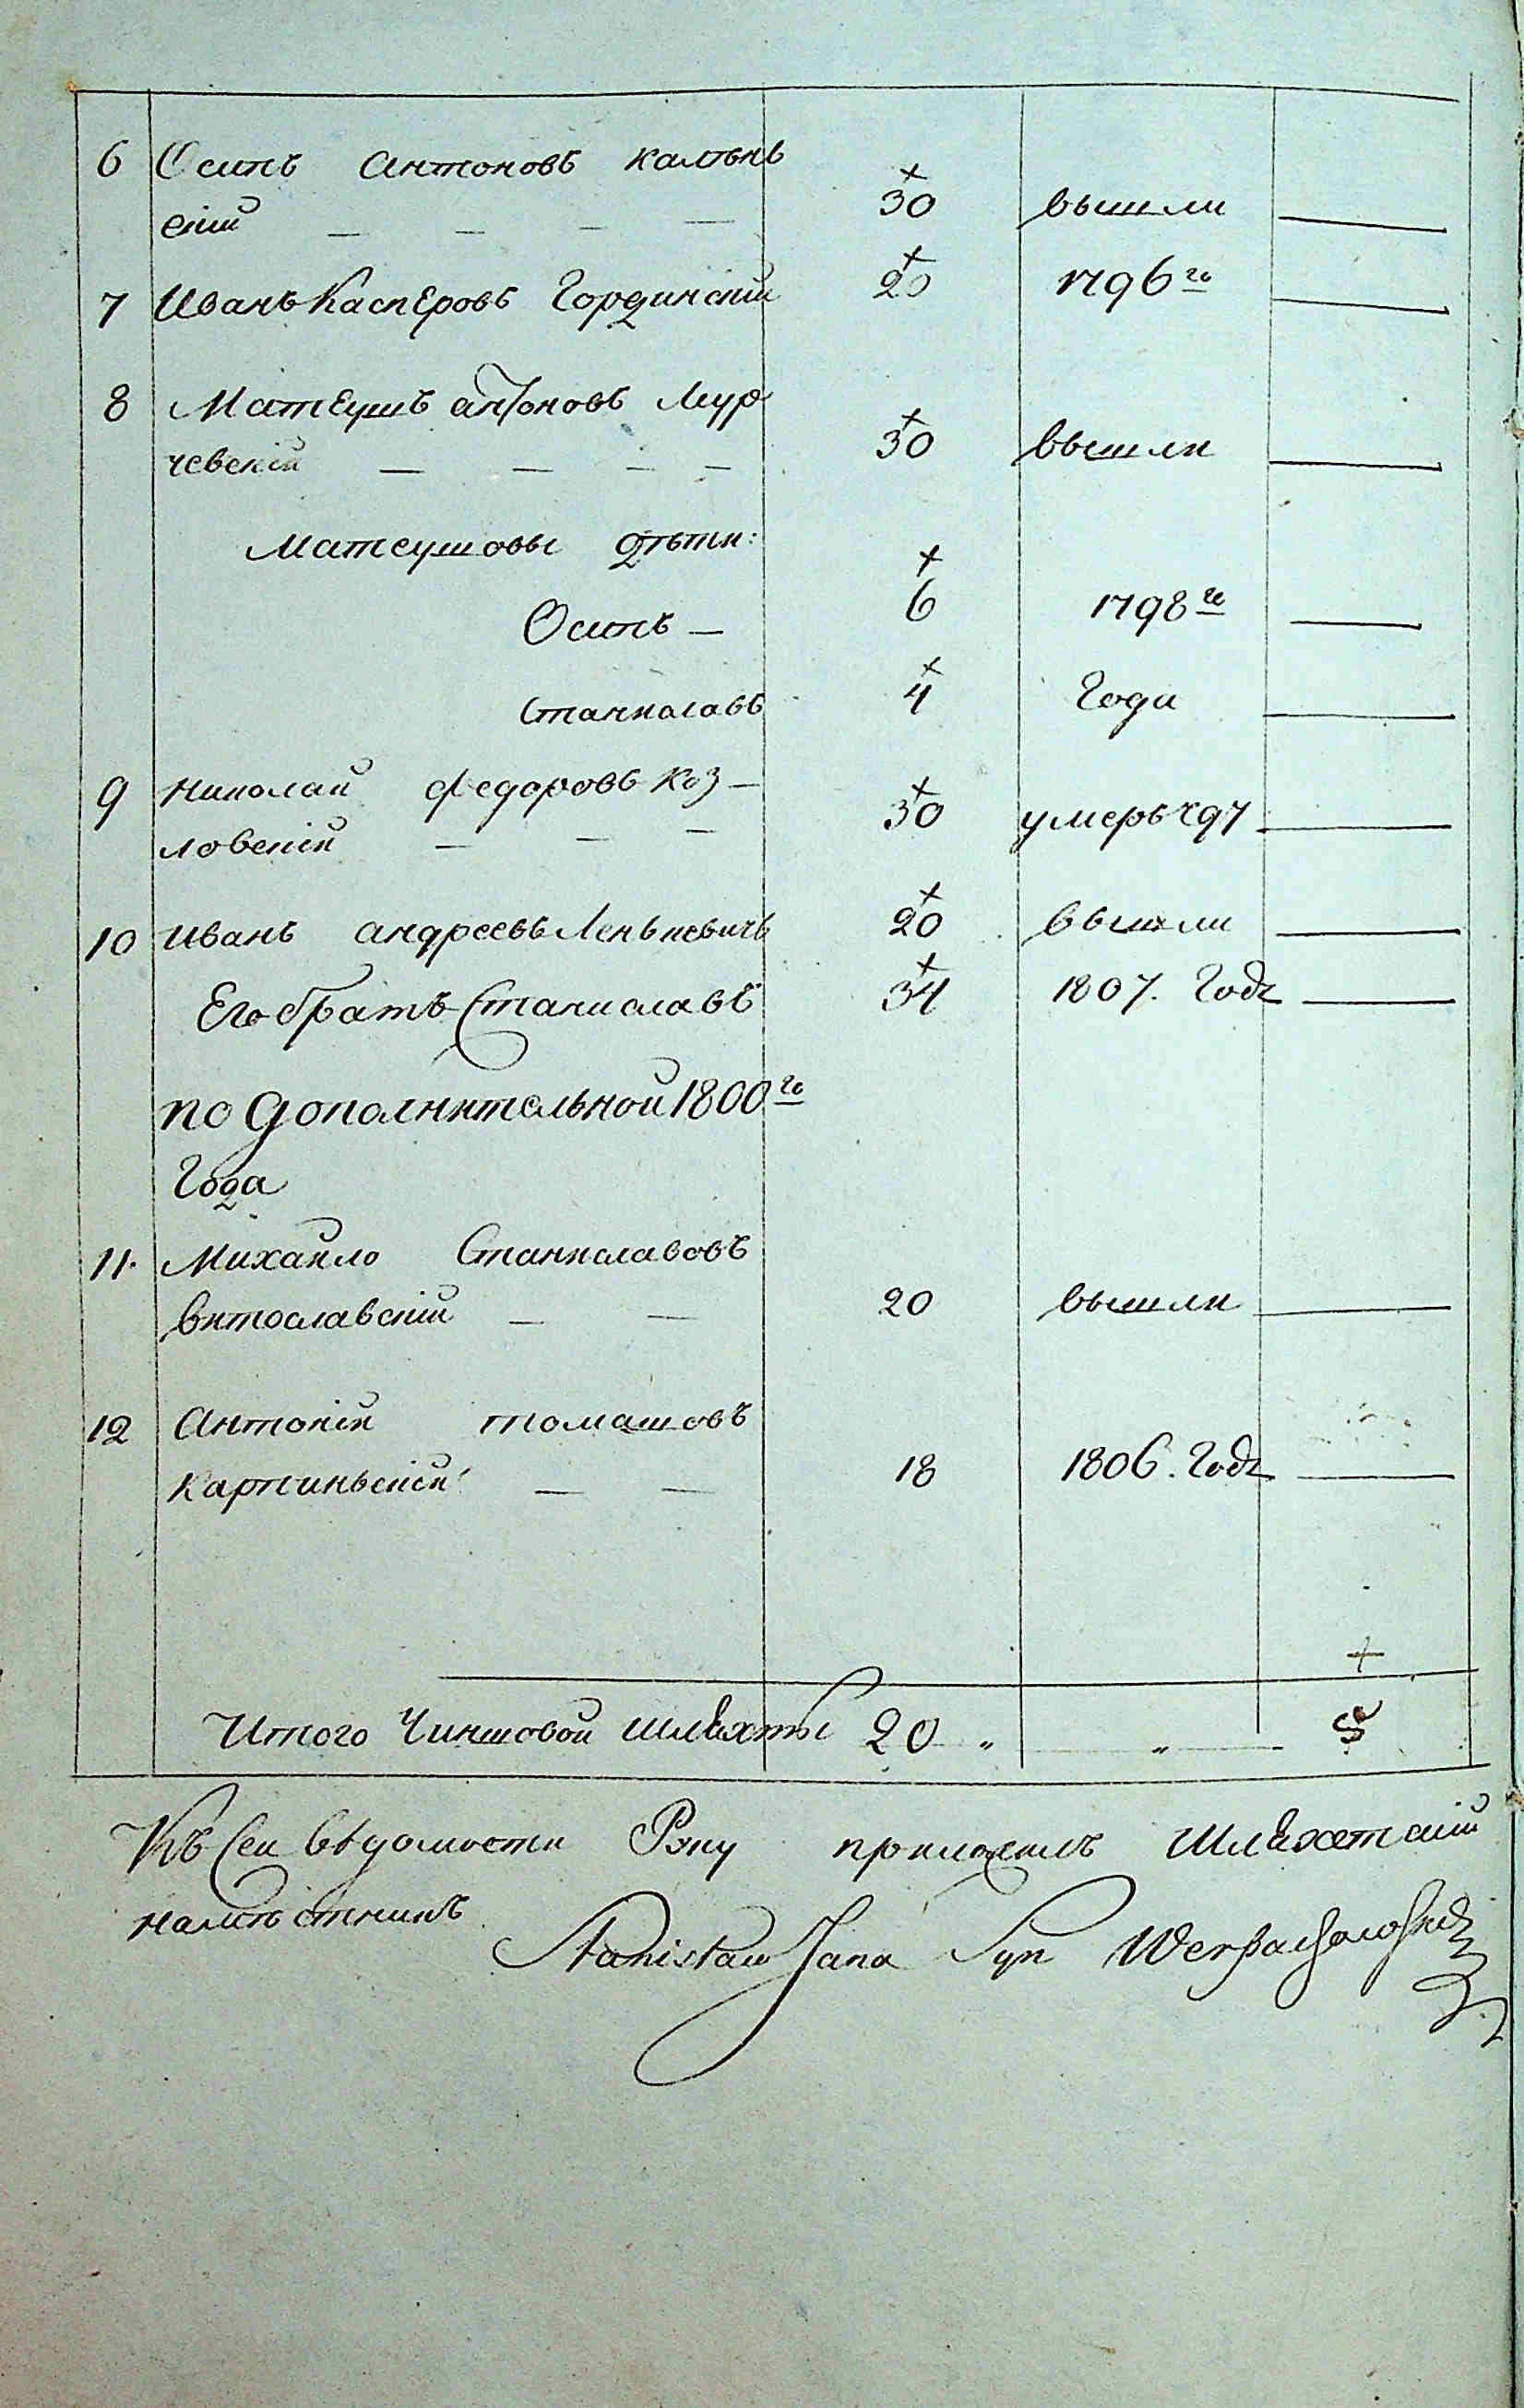 6 Осипъ Антоновъ Калынь
скій — — — — 30 вышли —
7 Иванъ Касперовъ Гординскій 20 1796го —
8 Матеушъ антоновъ Мур
чевскій — — — — 30 вышли —
Матеушовы дѣти:
Осипъ — 6 1798го —
Станиславъ 4 Года —
9 Николай Федоровъ Коз—
ловскій — — — 30 умеръ 797 —
10 Иванъ андреевъЛенькевичъ 20 вышли —
Его братъ Станиславъ 34 1807. Году —
по дополнительной 1800го
Года
11. Михайло Станиславовъ
Витославскій — — 20 вышли —
12 Антоній томашовъ
Карпиньскій — — 18 1806. Году —
Итого Чиншовой шляхты 20 „ „ 5
Къ сей ведомости Рэку приложилъ Шляхетскій
намѣстникъ Stanisław Jana Syn